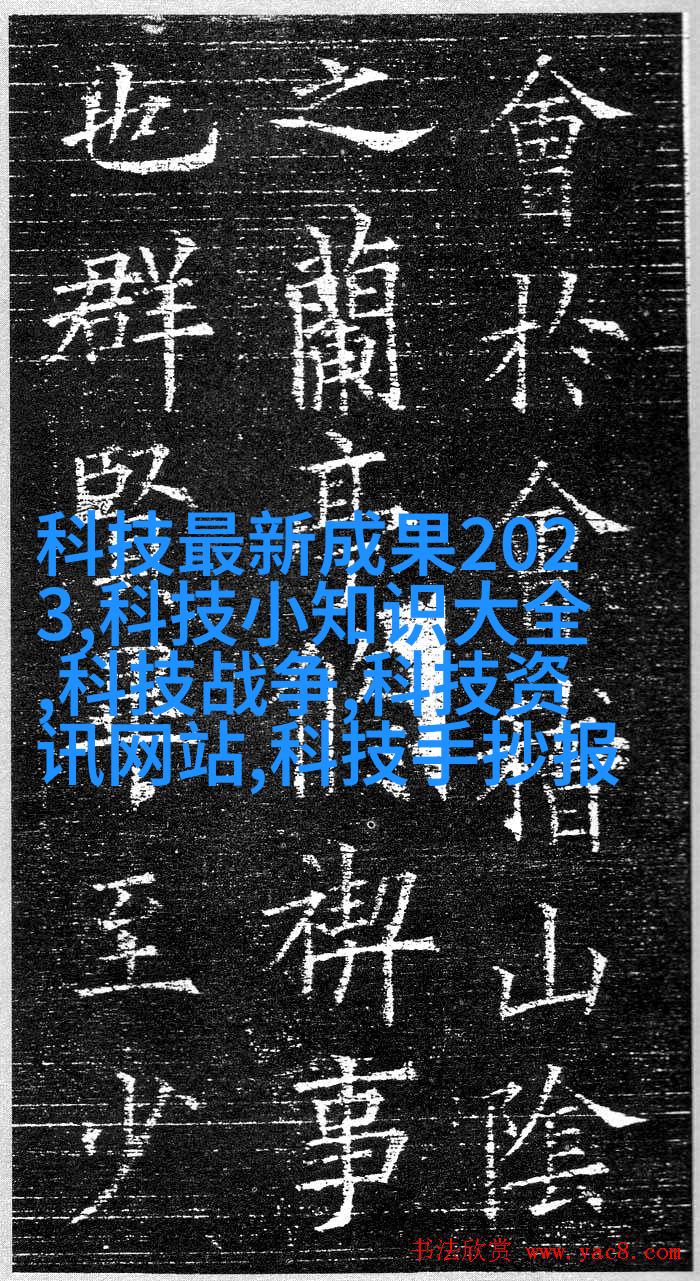 會於會稽山陰
之蘭亭脩禊事
也群賢畢至少
科技最新成果202
3,科技小知识大全
,科技战争,科技资
讯网站,科技手抄报
书法欣赏 www.yac8.com